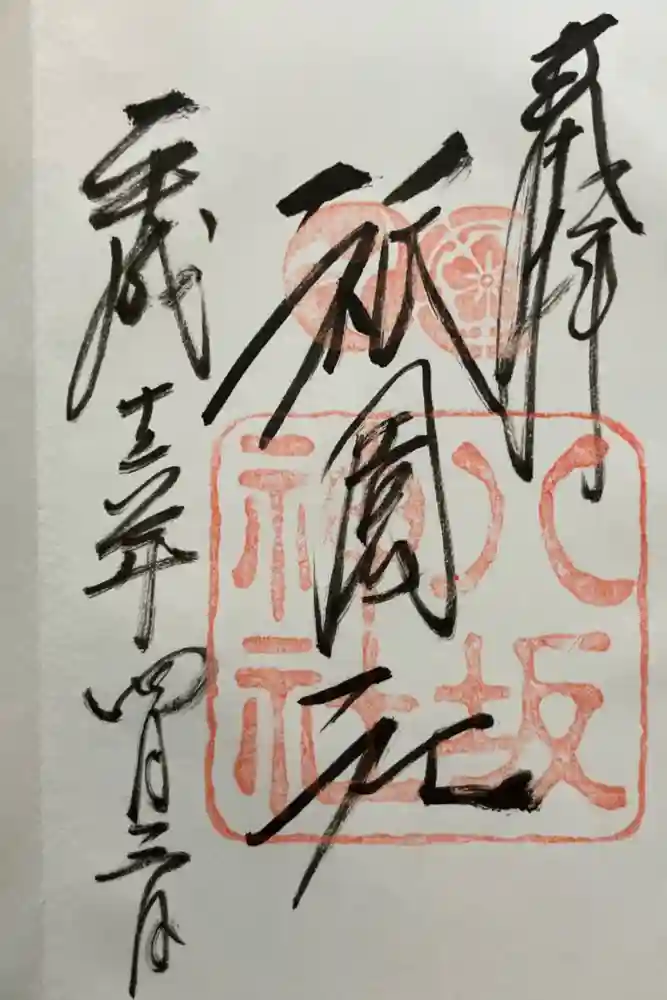 奉拝
祇園社
平成十三年四月二日
八坂
神社